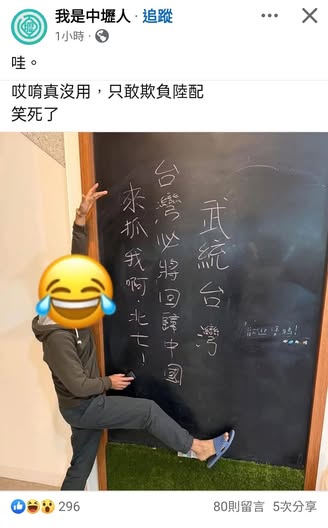 我是中壢人 · 追蹤
1小時 ·
哇。
哎唷真沒用，只敢欺負陸配
笑死了
武統台灣
台灣必將回歸中國
來抓我啊
296
80則留言 5次分享